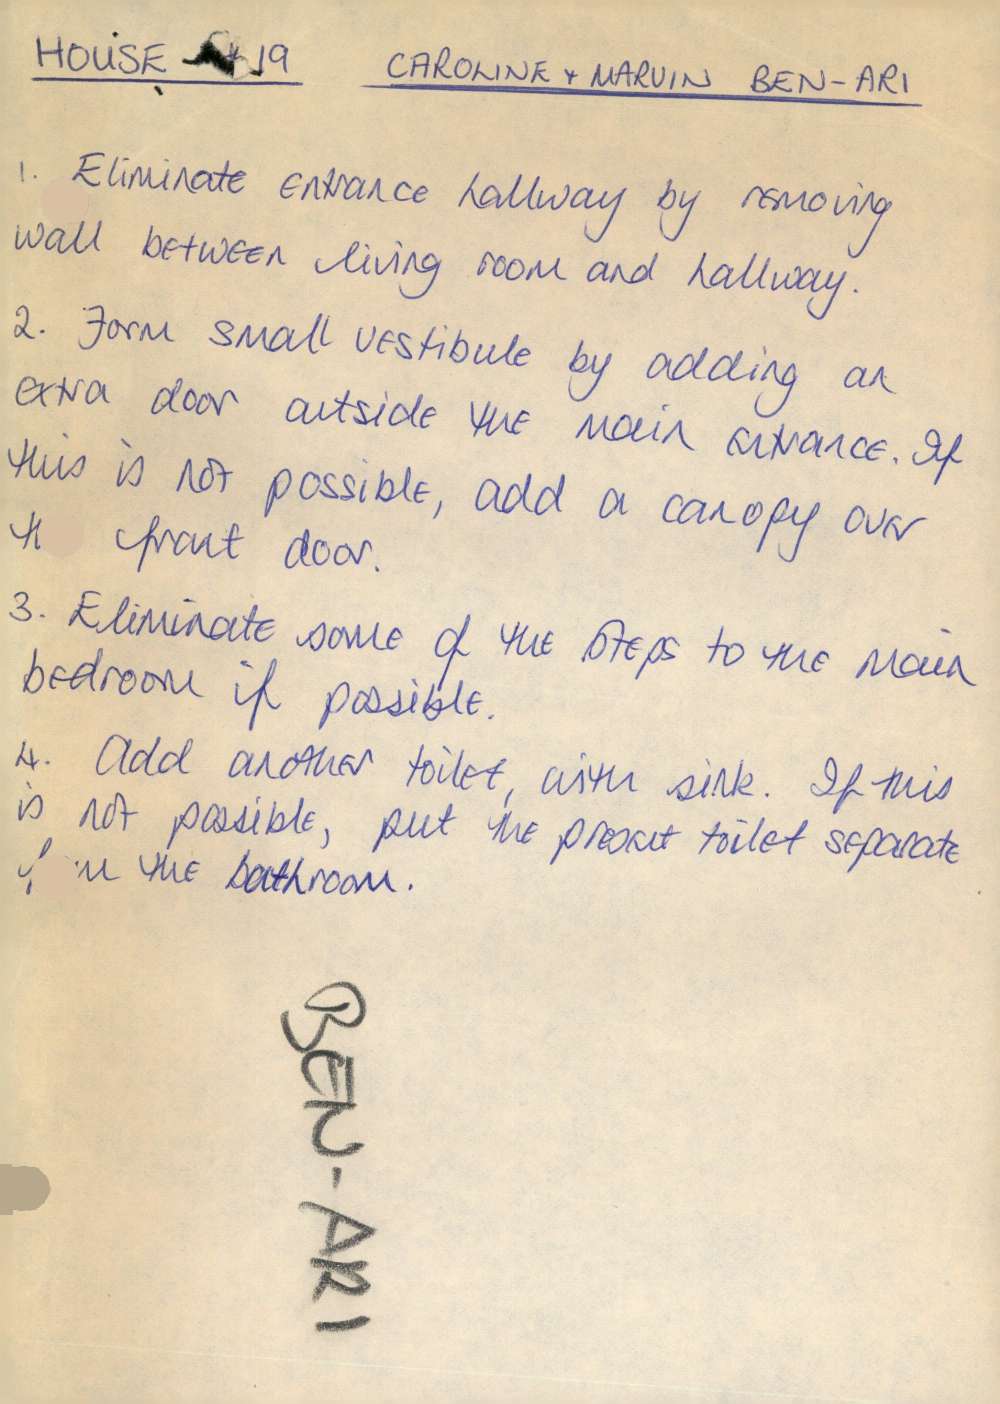 HOUSE 19 CAROLINE + MARVIN BEN-ARI
1. Eliminate entrance hallway by removing
wall between living room and hallway.
2. Form small vestibule by adding an
extra door outside the main entrance. If
this is not possible, add a canopy over
front door.
3. Eliminate some of the steps to the main
bedroom if possible.
4. Add another toilet, with sink. If this
is not possible, put the present toilet separate
the bathroom.
BEN-ARI